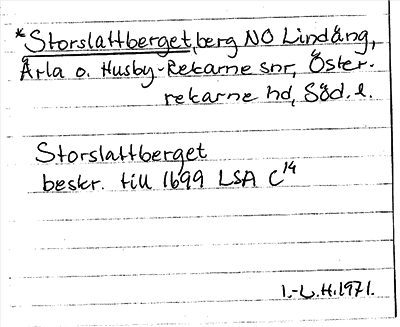 *Storslattberget, berg NO Lindång,
Ärla o. Husby-Rekarne snr, Öster-
rekarne hd, Söd. l.
Storslattberget
beskr. till 1699 LSA C¹⁴
I.-L.H. 1971.